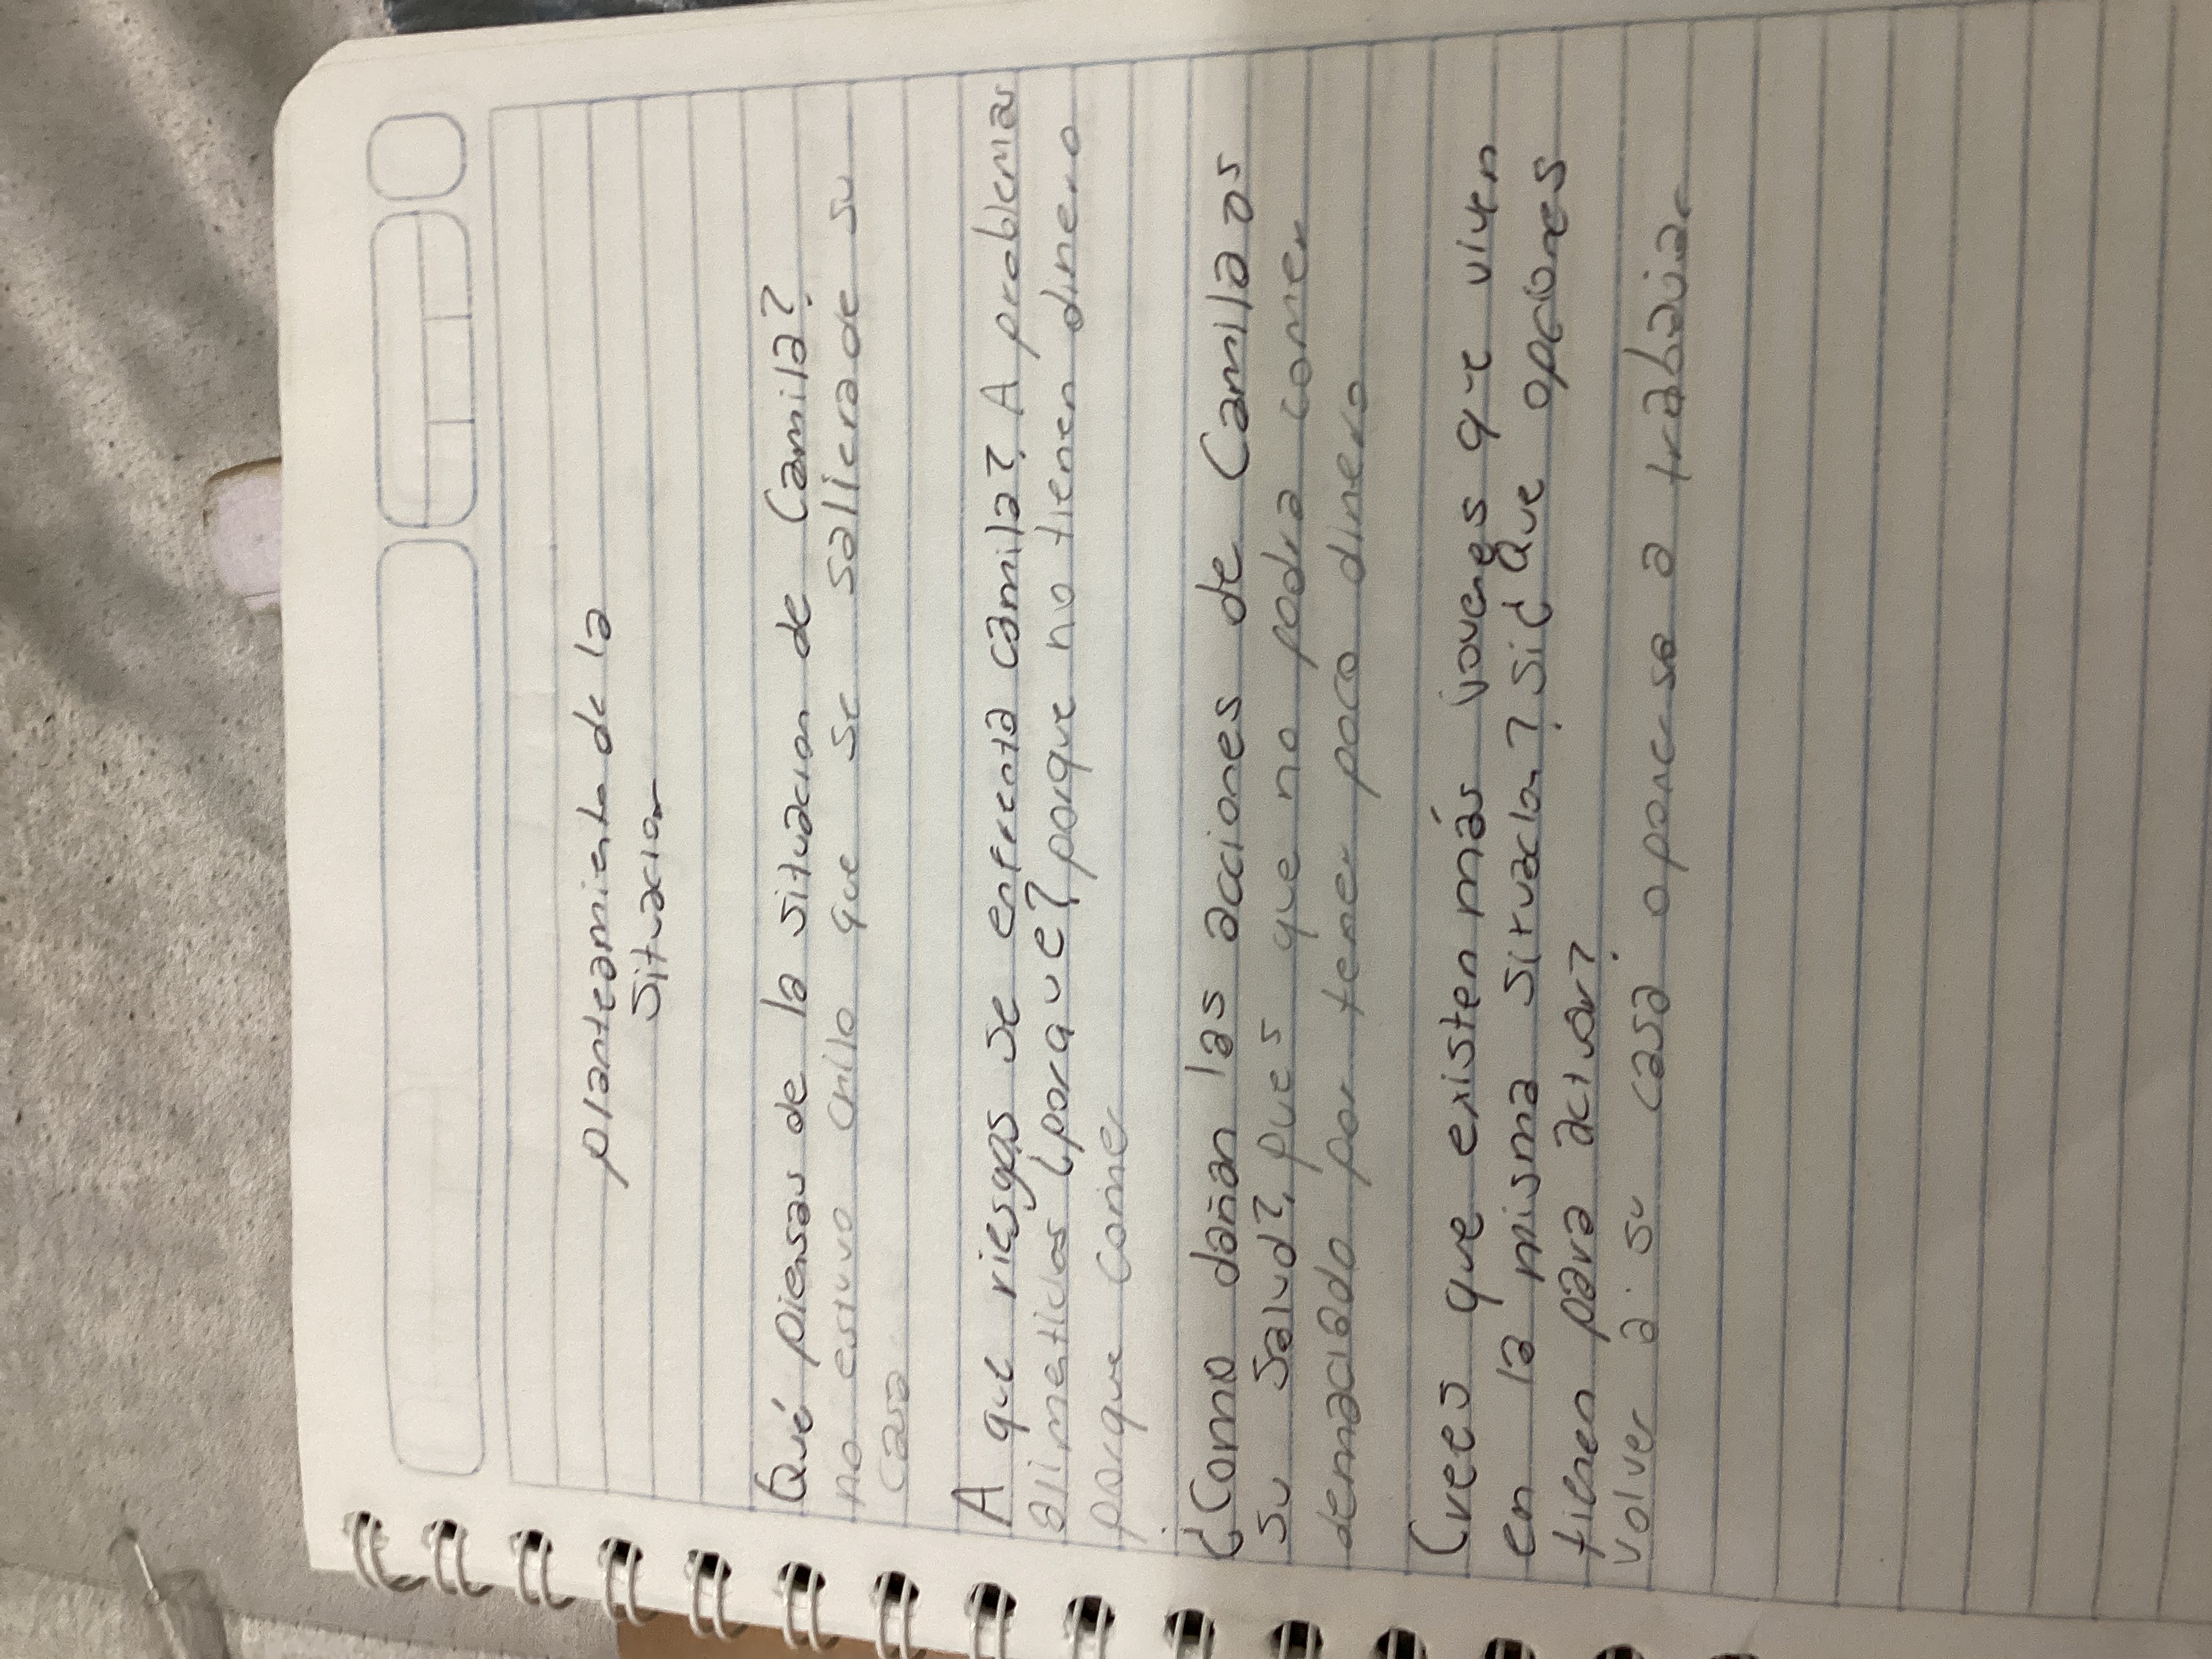 planteamiento de la
situacion
Qué piensas de la situacion de Camila?
no estuvo chilo que se salierade su
casa
A que riesgos se enfrenta camila? A problemas
alimenticios ¿porque? porque no tienen dinero
porque comer
¿Como dañan las acciones de Camila as
su salud?, pues que no podra comer
demaciado por tener poco dinero
Crees que existen más jovenes que viven
en la misma situacion? si ¿Que opciones
tienen para actuar?
volver a su casa o ponerse a trabajar